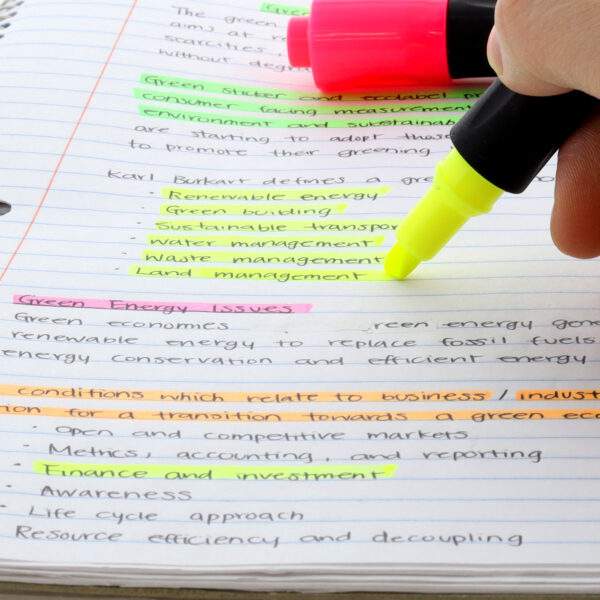 Gree
The green
aims at re
scarcities,
without degra
Green sticker and ecolabel pr
consumer facing measurement
environment and sustainab
are starting to adopt these
to promote their greening
Karl Burkart defines a gre
· Renewable energy
· Green building
· Sustainable transpor
· Water management
· Waste management
· Land management
Green Energy Issues
Green economies reen energy gene
renewable energy to replace fossil fuels
energy conservation and efficient energy
conditions which relate to business / indust
ion for a transition towards a green eco
· Open and competitive markets
· Metrics, accounting, and reporting
· Finance and investment
· Awareness
· Life cycle approach
Resource efficiency and decoupling